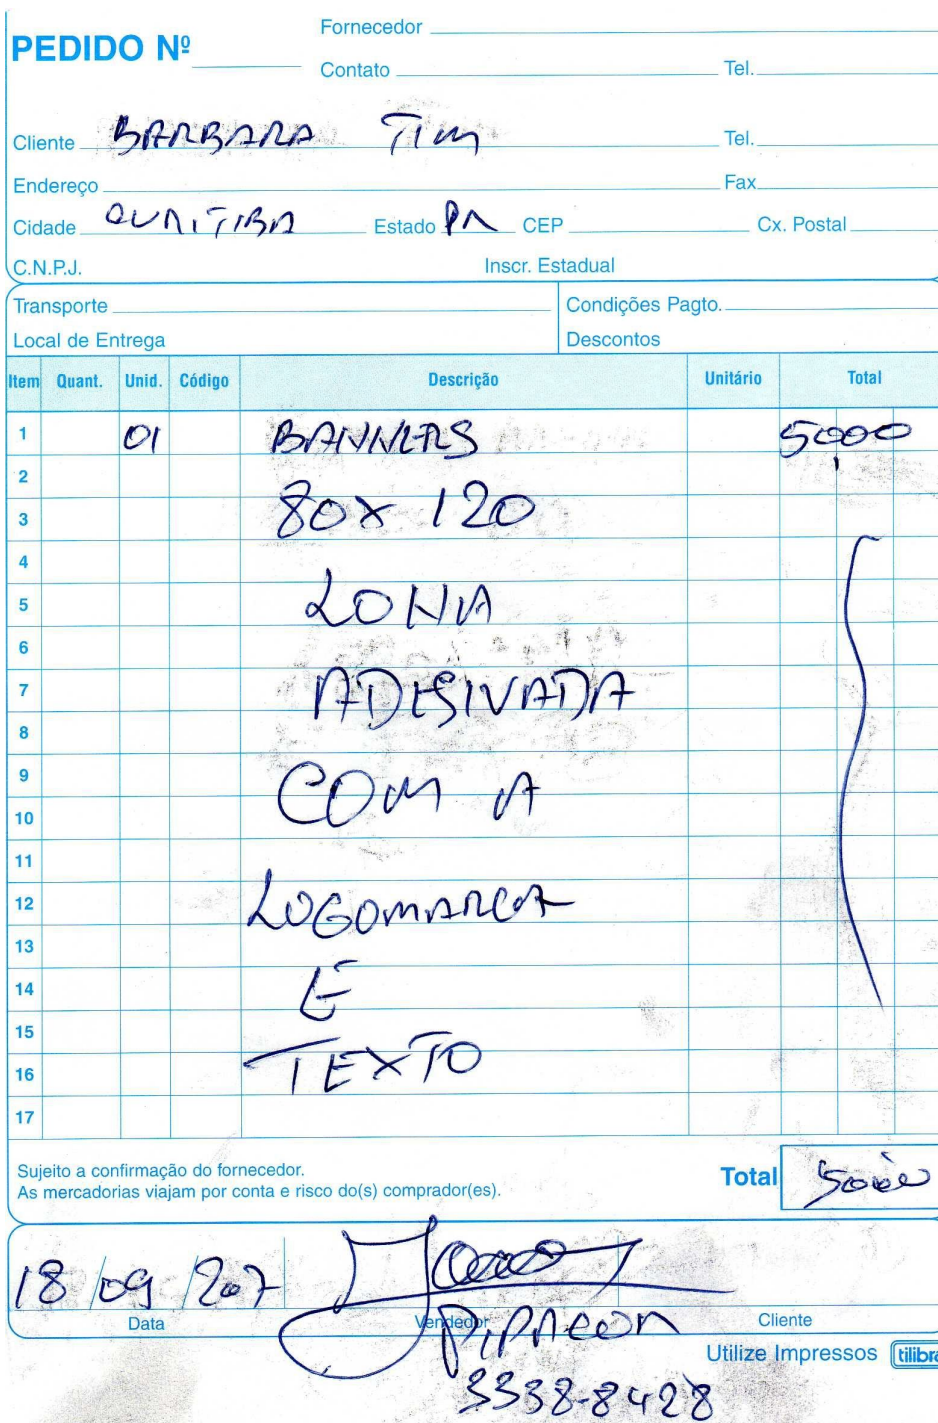 Fornecedor
PEDIDO Nº
Contato Tel.
Cliente BARBARA TIM Tel.
Endereço Fax
Cidade CURITIBA Estado PR CEP Cx. Postal
C.N.P.J. Inscr. Estadual
Transporte Condições Pagto.
Local de Entrega Descontos
Item Quant. Unid. Código Descrição Unitário Total
1 01 BANNERS 50,00
2
3 80X 120
4
5 LONA
6
7 ADESIVADA
8
9
10 COM A
11
12 LOGOMARCA
13
14 E
15
16 TEXTO
17
Sujeito a confirmação do fornecedor.
As mercadorias viajam por conta e risco do(s) comprador(es).
Total 50,00
18/09/207
Data Vendedor Cliente
Utilize Impressos tilibra
3338-8428